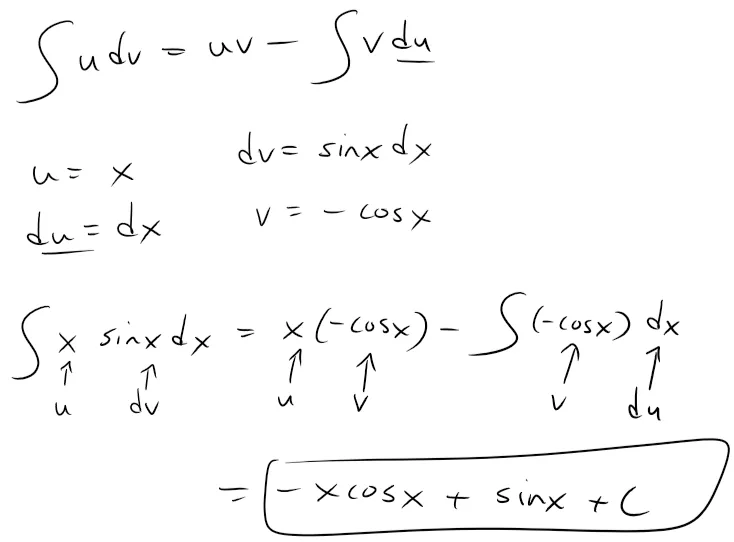 ∫ u dv = uv - ∫ v du
u = x dv = sinx dx
du = dx v = - cosx
∫ x sinx dx = x (-cosx) - ∫ (-cosx) dx
↑ ↑ ↑ ↑ ↑ ↑
u dv u v v du
= - x cosx + sinx + C